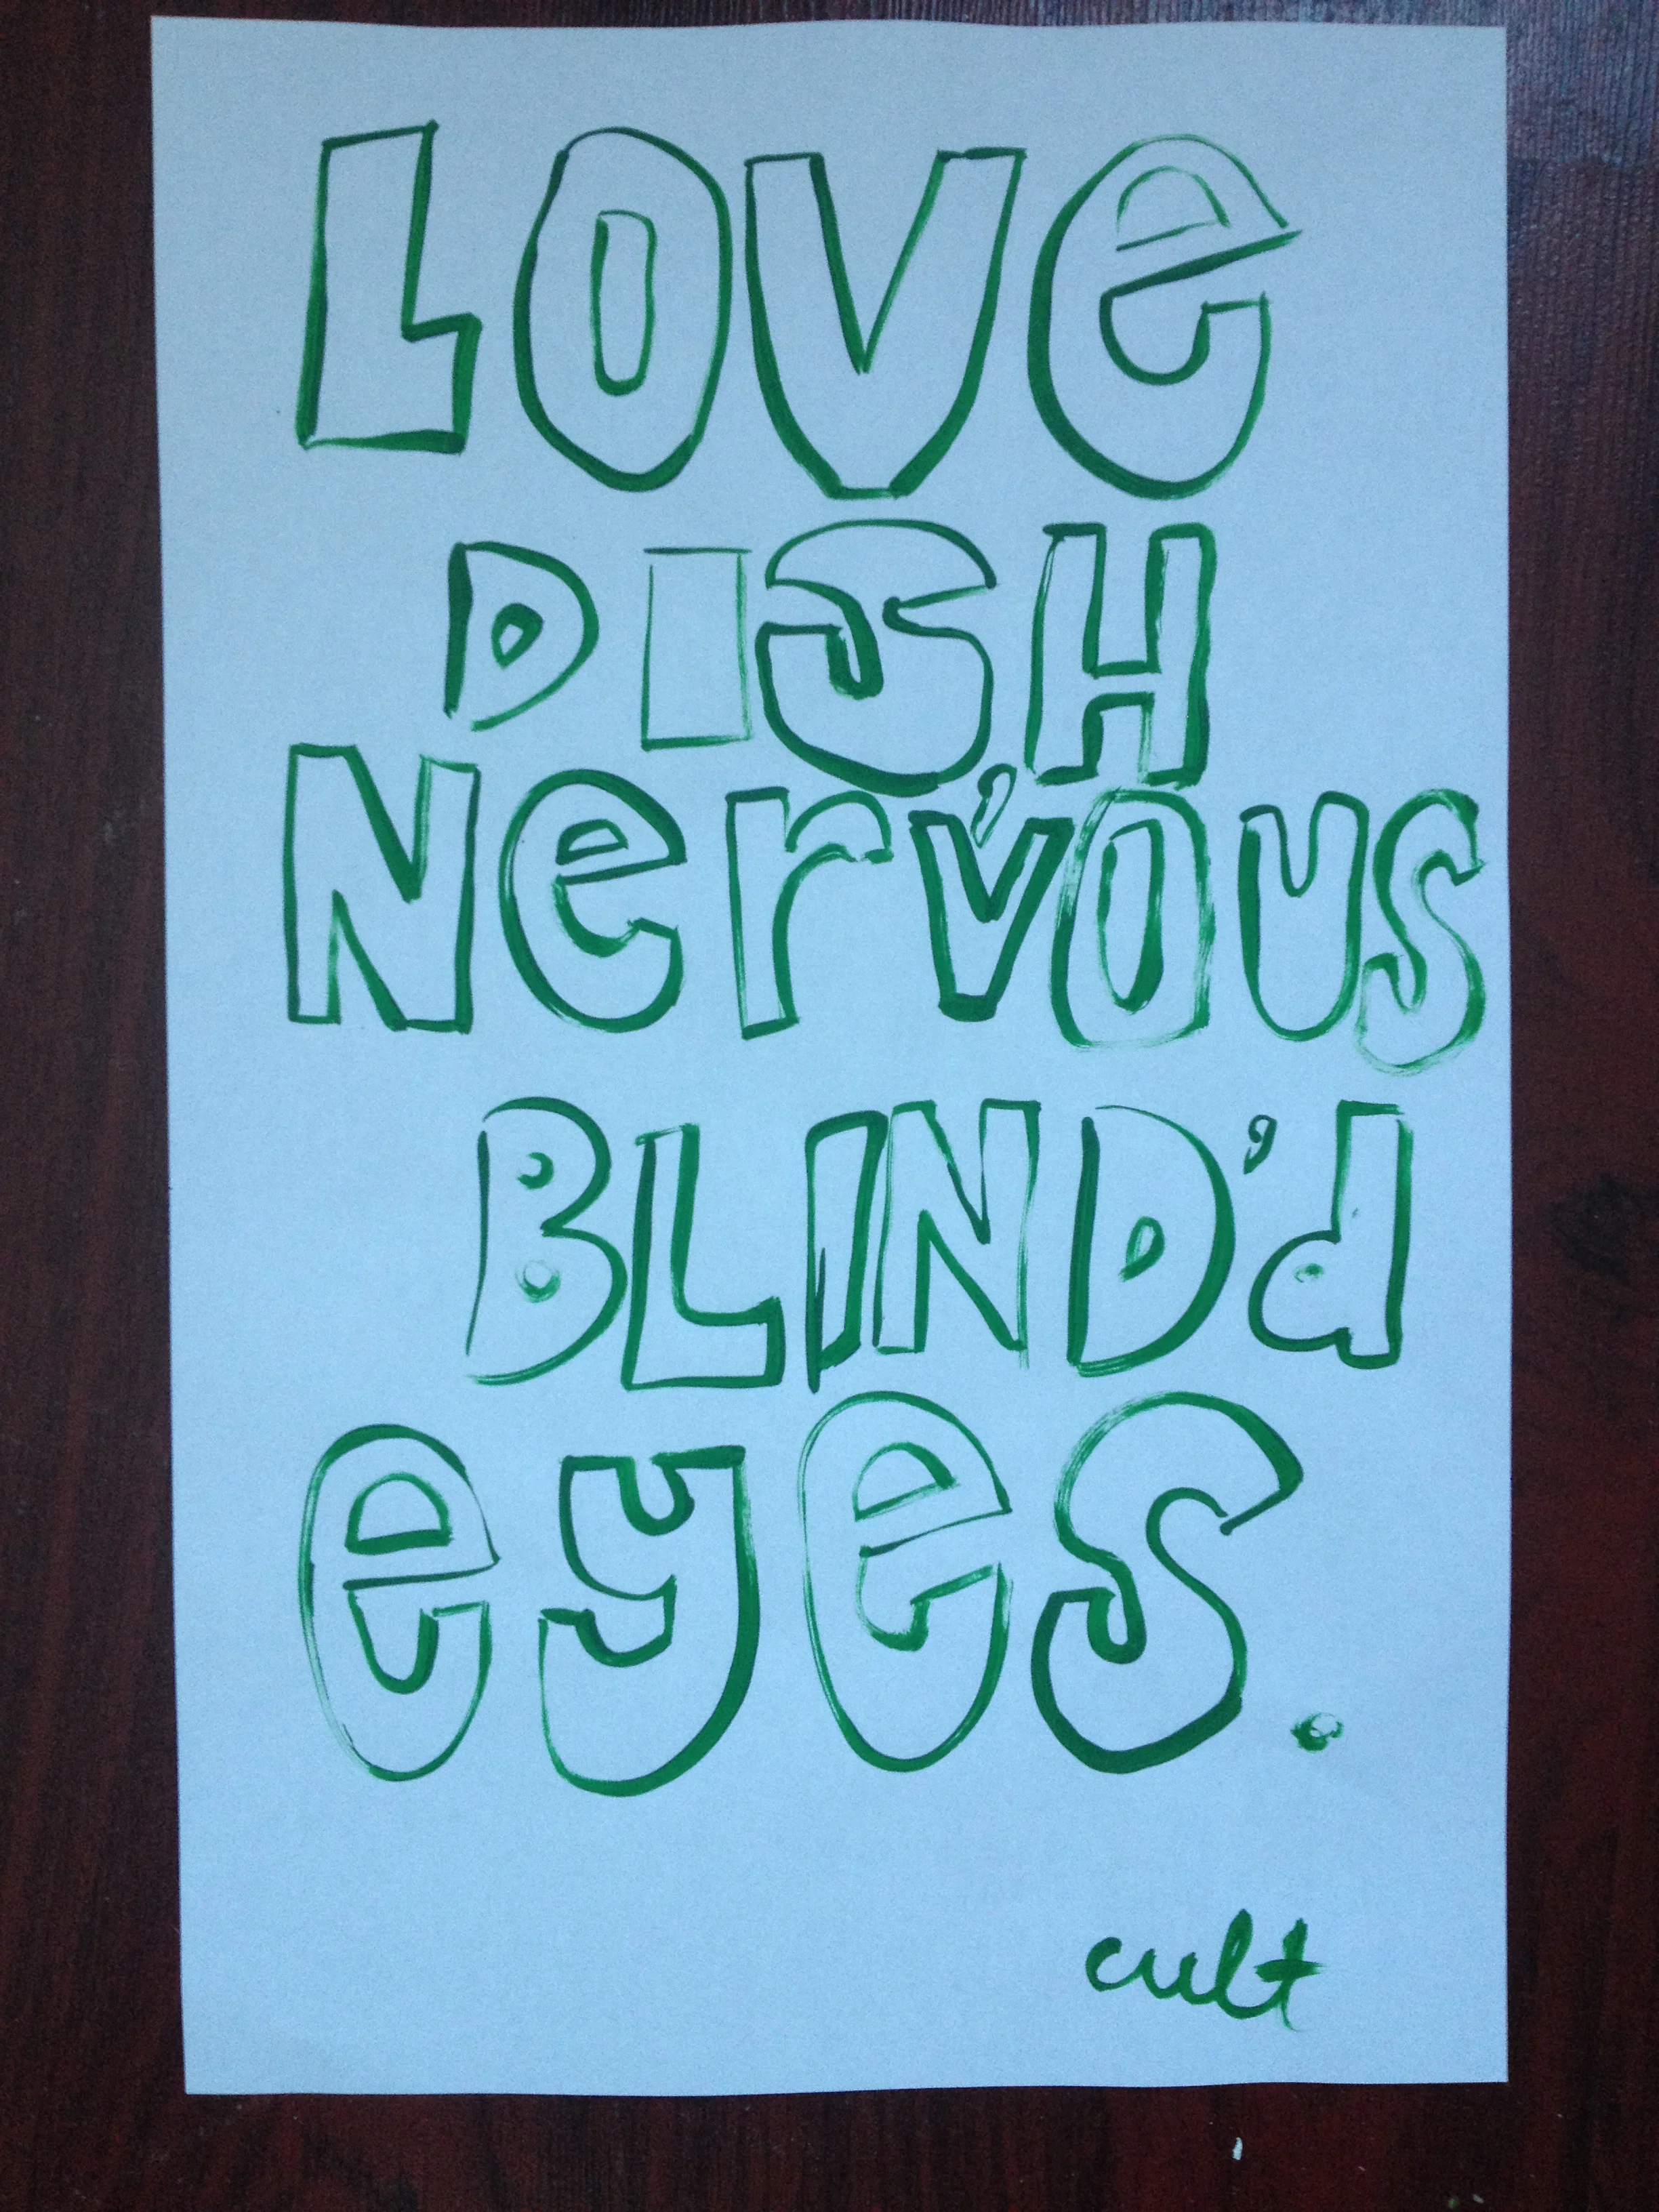 LOVe
DISH
Nerv'OUS
BLIND'd
eyes.
cult